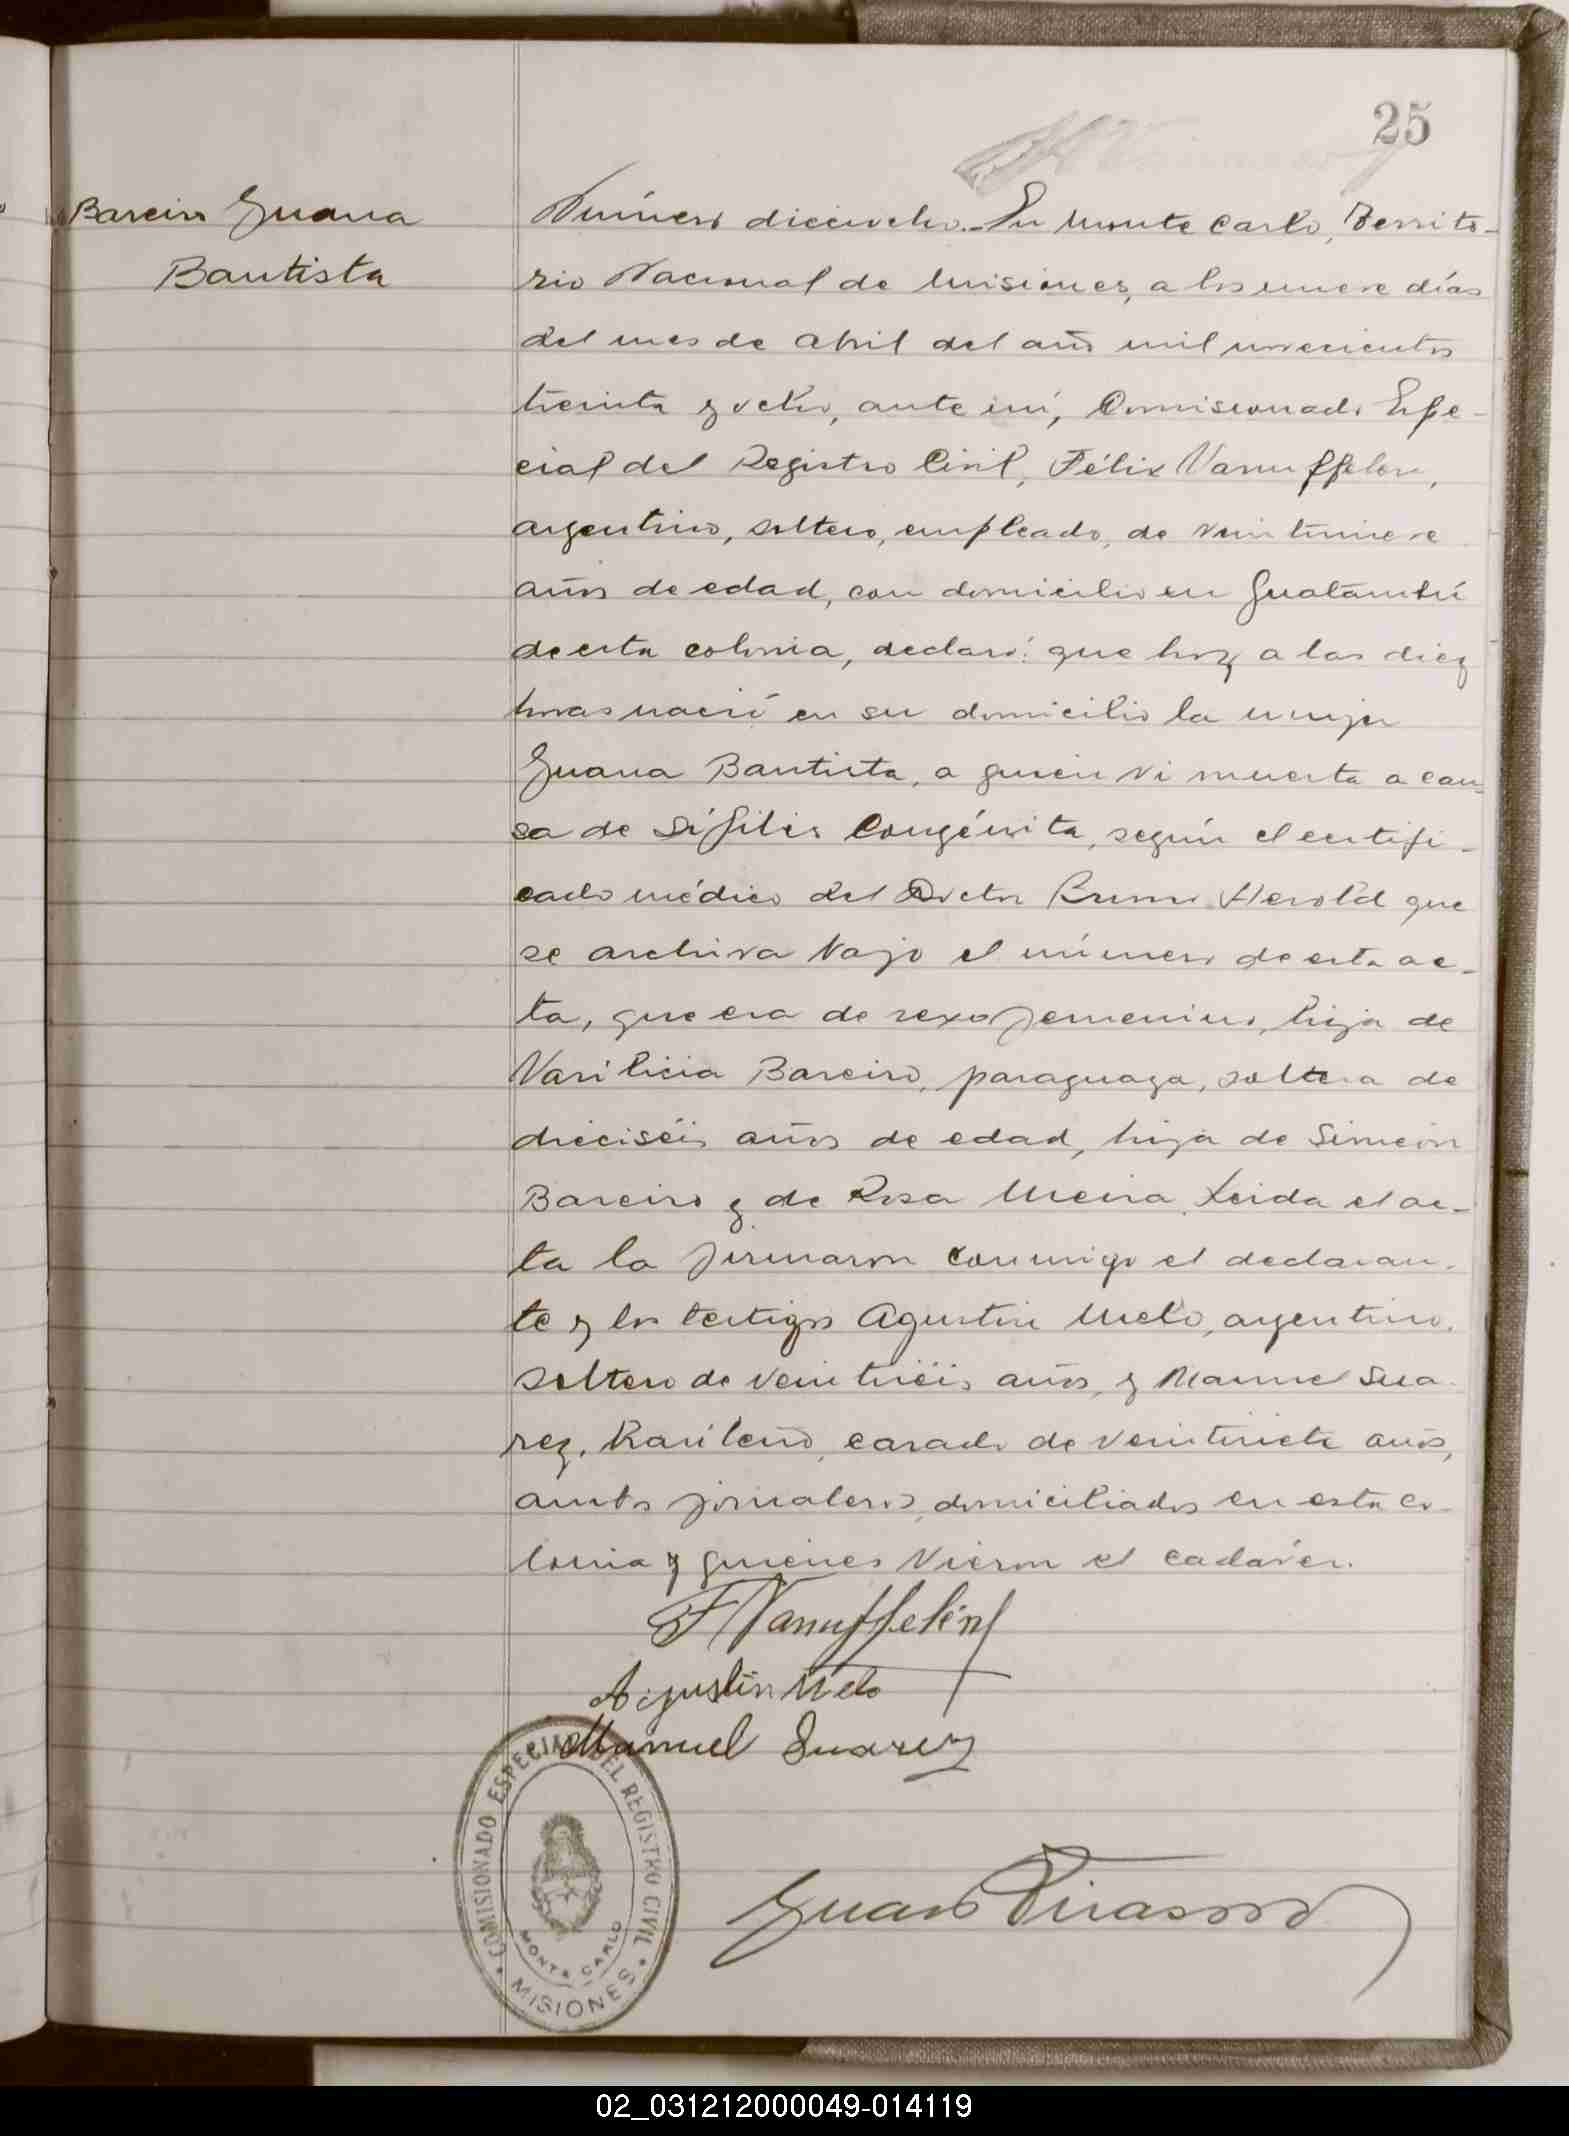 25
Bareiro Juana
Bautista
Número dieciocho.- En Monte Carlo, Territo-
rio Nacional de Misiones, a los nueve días
del mes de abril del año mil novecientos
treinta y ocho, ante mí, Comisionado Espe-
cial del Registro Civil, Félix Vanuffelen,
argentino, soltero, empleado, de veintinueve
años de edad, con domicilio en Guatambú
de esta colonia, declaró: que hoy a las diez
horas nació en su domicilio la mujer
Juana Bautista, a quien vi muerta a cau-
sa de Sífilis Congénita, según el certifi-
cado médico del Doctor Bruno Herold que
se archiva vajo el número de esta ac-
ta, que era de sexo femenino, hija de
Bareiro, paraguaya, soltera de
dieciséis años de edad, hija de Simeón
Bareiro y de Rosa Meira. Leida el ac-
ta la firmaron conmigo el declaran-
te y los testigos Agustin Melo, argentino,
soltero de veintiséis años, y Manuel Sua-
rez, Brasileño, casado de veintisiete años,
ambos jornaleros, domiciliados en esta co-
lonia y quienes vieron el cadáver.
F Vanuffelén
Agustin Melo
Manuel Suarez
COMISIONADO ESPECIAL DEL REGISTRO CIVIL
MONTE CARLO
MISIONES
Juan
02_031212000049-014119